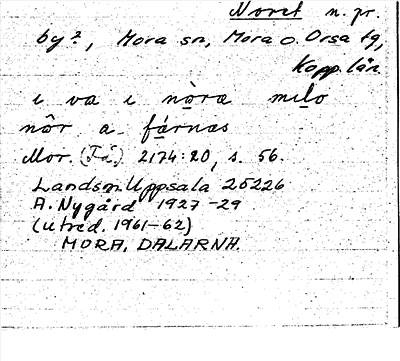 Noret n. pr.
by?, Mora sn, Mora o. Orsa tg,
Kopp. län.
i va i nòra milo
nôr a fárnas
Mor. (Få) 2174:20, s. 56.
Landsm. Uppsala 25226
A. Nygård 1927-29
(utred. 1961-62)
MORA, DALARNA.